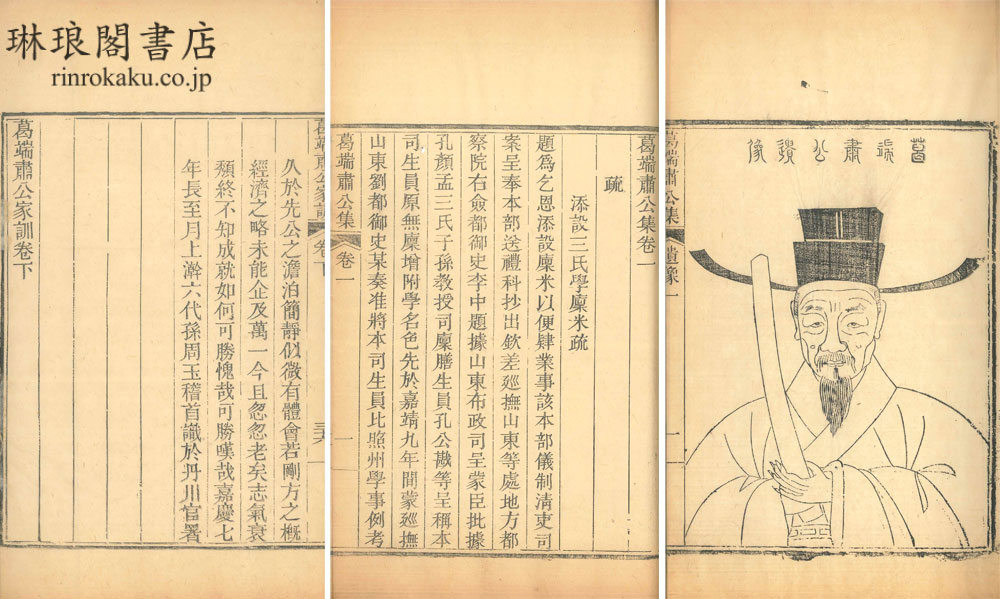 琳琅閣書店
rinrokaku.co.jp
葛端肅公遺像
葛端肅公集 遺像 一
葛端肅公集卷一
疏
添設三氏學廩米疏
題爲乞恩添設廩米以便肄業事該本部儀制淸吏司
案呈奉本部送禮科抄出欽差廵撫山東等處地方都
察院右僉都御史李中題據山東布政司呈蒙臣批據
孔顏孟三氏子孫教授司廩膳生員孔公等呈稱本
司生員原無廩增附學名色先於嘉靖九年間蒙廵撫
山東劉都御史某奏准將本司生員比照州學事例考
葛端肅公集 卷一 一
葛端肅公家訓 卷下 三六
久於先公之澹泊簡靜似微有體會若剛方之概
經濟之略未能企及萬一今且忽忽老矣志氣衰
頹終不知成就如何可勝愧哉可勝嘆哉嘉慶七
年長至月上澣六代孫周玉稽首識於丹川官署
葛端肅公家訓卷下